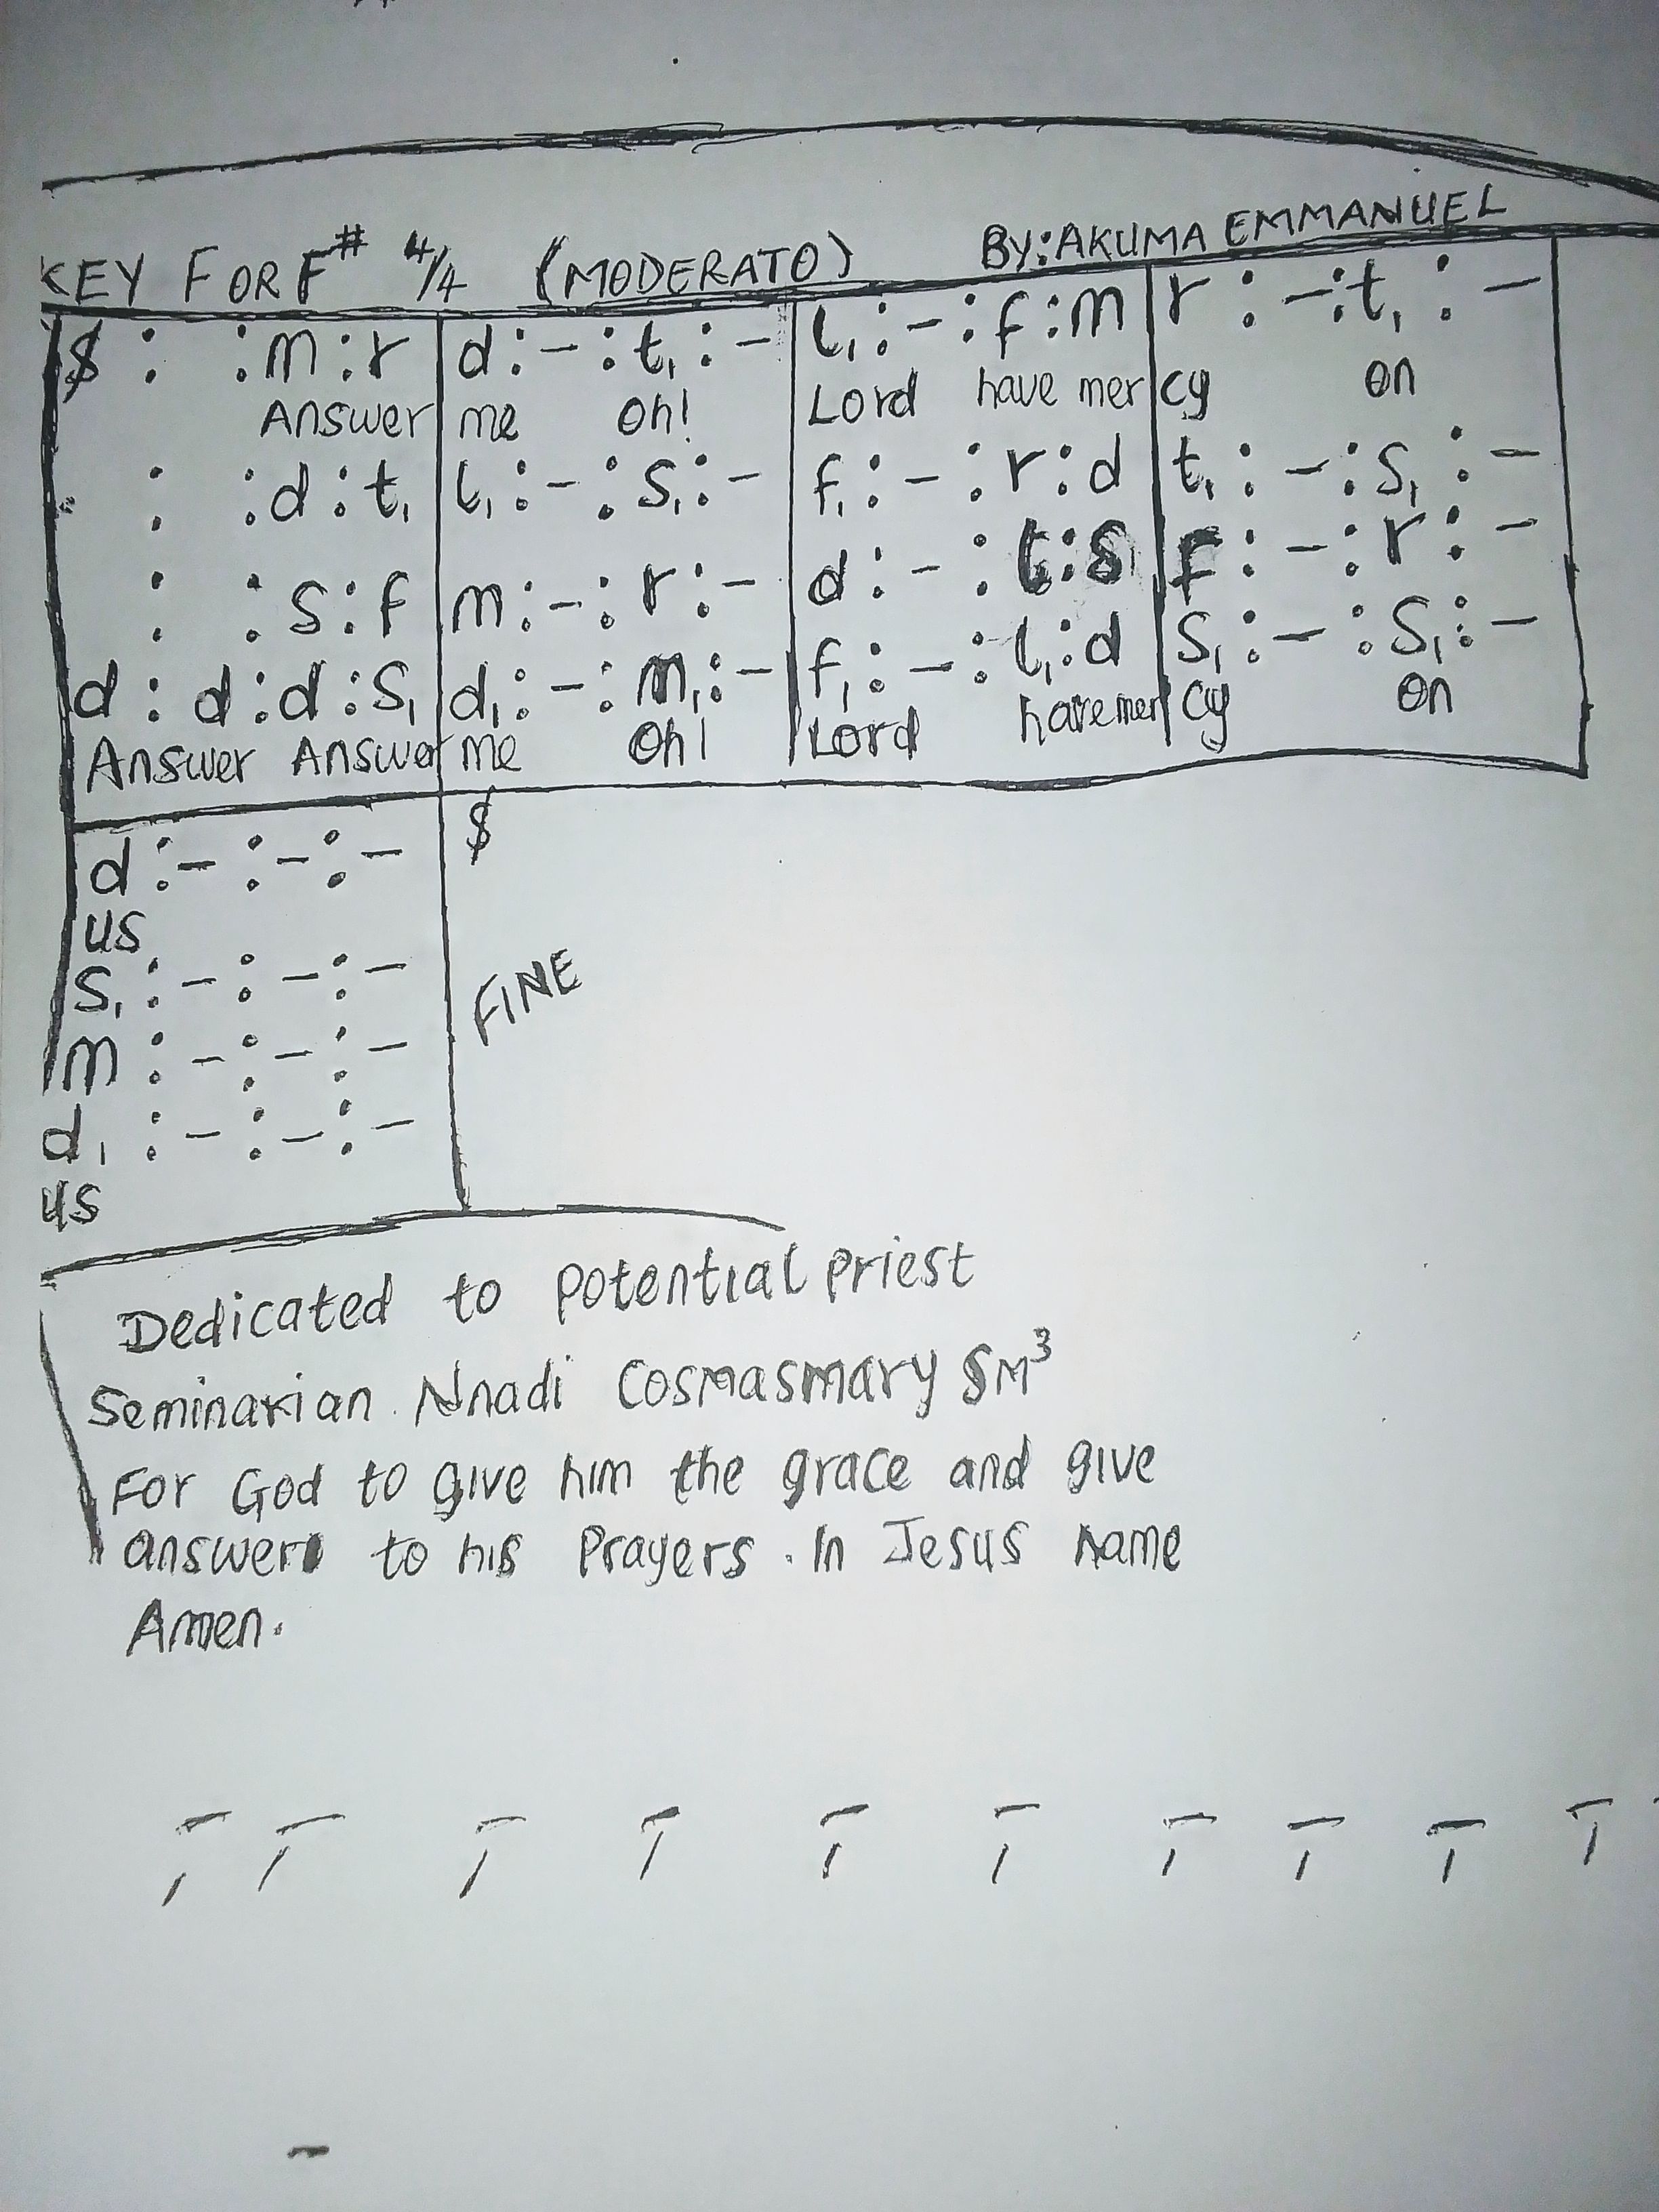 KEY FOR F# 4/4 (MODERATO) BY: AKUMA EMMANUEL
$ : : m : r | d : - : t, : - | l, : - : f : m | r : - : t, : -
Answer me Oh! Lord have mercy on
: : d : t, | l, : - : s, : - | f, : - : r : d | t, : - : s, : -
: : s : f | m : - : r : - | d : - : t : s | f : - : r : -
d : d : d : s, | d, : - : m, : - | f, : - : l, : d | s, : - : s, : -
Answer Answer me Oh! Lord have mercy on
d : - : - : - | $
us
s, : - : - : -
FINE
m : - : - : -
d, : - : - : -
us
Dedicated to Potential Priest
Seminarian Nnadi Cosmasmary SM³
For God to give him the grace and give
answer to his Prayers. In Jesus name
Amen.